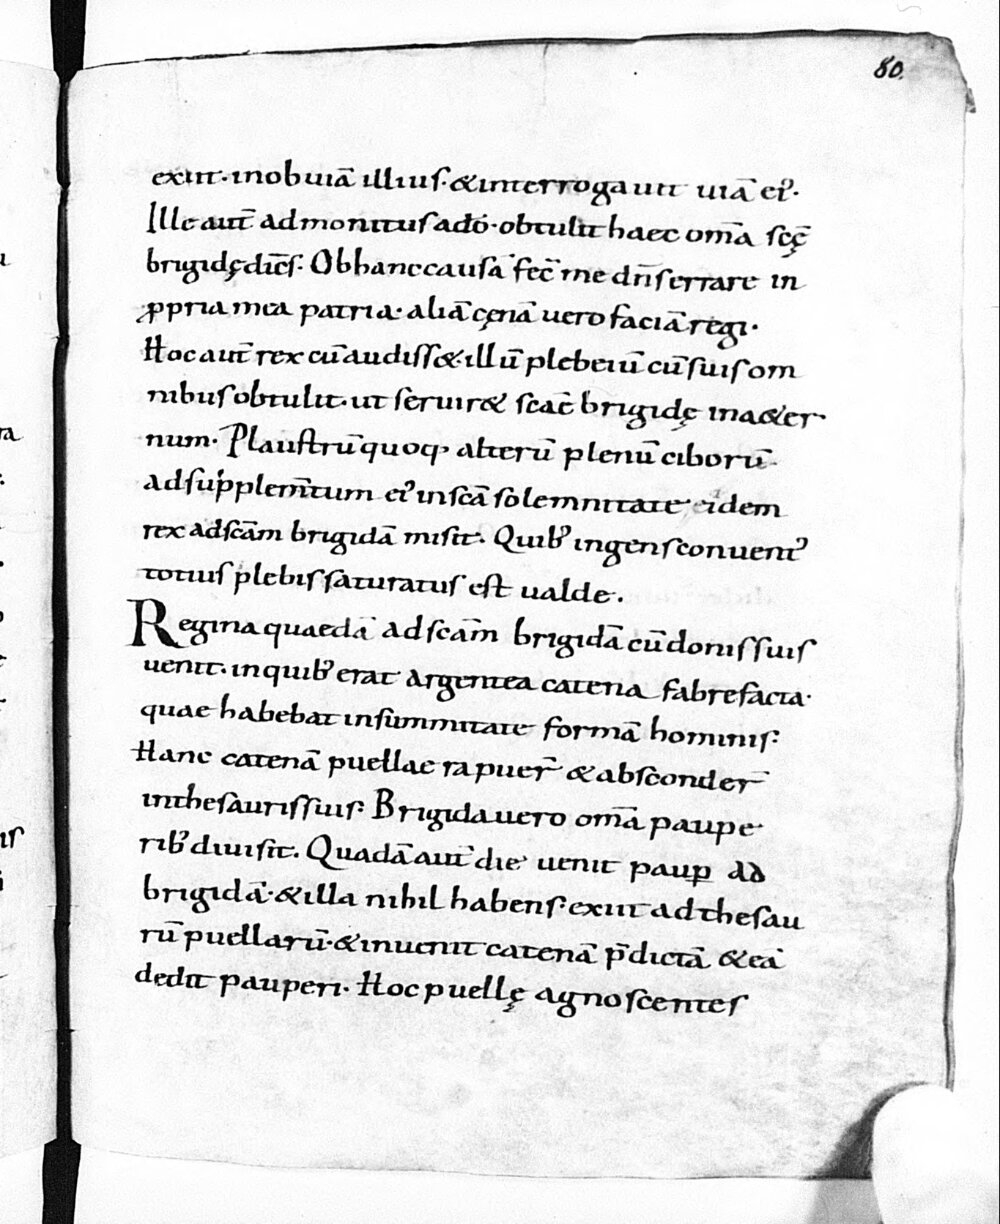 80.
exiit· inobuiā illius· &interrogauit uiā ei᾽·
Ille aut̄ admonitus adō· obtulit haec om̄a sc̄ę
brigidę dic̄s· Ob hanc causā fec̄ me dn̄s errare in
ꝓpria mea patria· aliā cęnā uero faciā regi·
Hoc aut̄ rex cū audiss&· illū plebeiū cū suis om
nibus obtulit· ut seruir& sc̄ae brigidę ina&er
num· Plaustrū quoq᾽ alterū plenū ciborū
adsupplem̄tum ei᾽ insc̄a solemnitate eidem
rex adsc̄am brigidā misit· Quib᾽ ingens conuent᾽
totius plebis saturatus est ualde·
Regina quaedā adsc̄am brigidā cū donis suis
uenit· inquib᾽ erat argentea catena fabrefacta·
quae habebat insummitate formā hominis·
Hanc catenā puellae rapuer̄ & absconder̄
inthesauris suis· Brigida uero om̄a paupe
rib᾽ diuisit. Quadā aut̄ die uenit paup̱ ad
brigidā· &illa nihil habens· exiit ad thesau
rū puellarū· &inuenit catenā p̄dictā &eā
dedit pauperi· Hoc puellę agnoscentes
ra
is